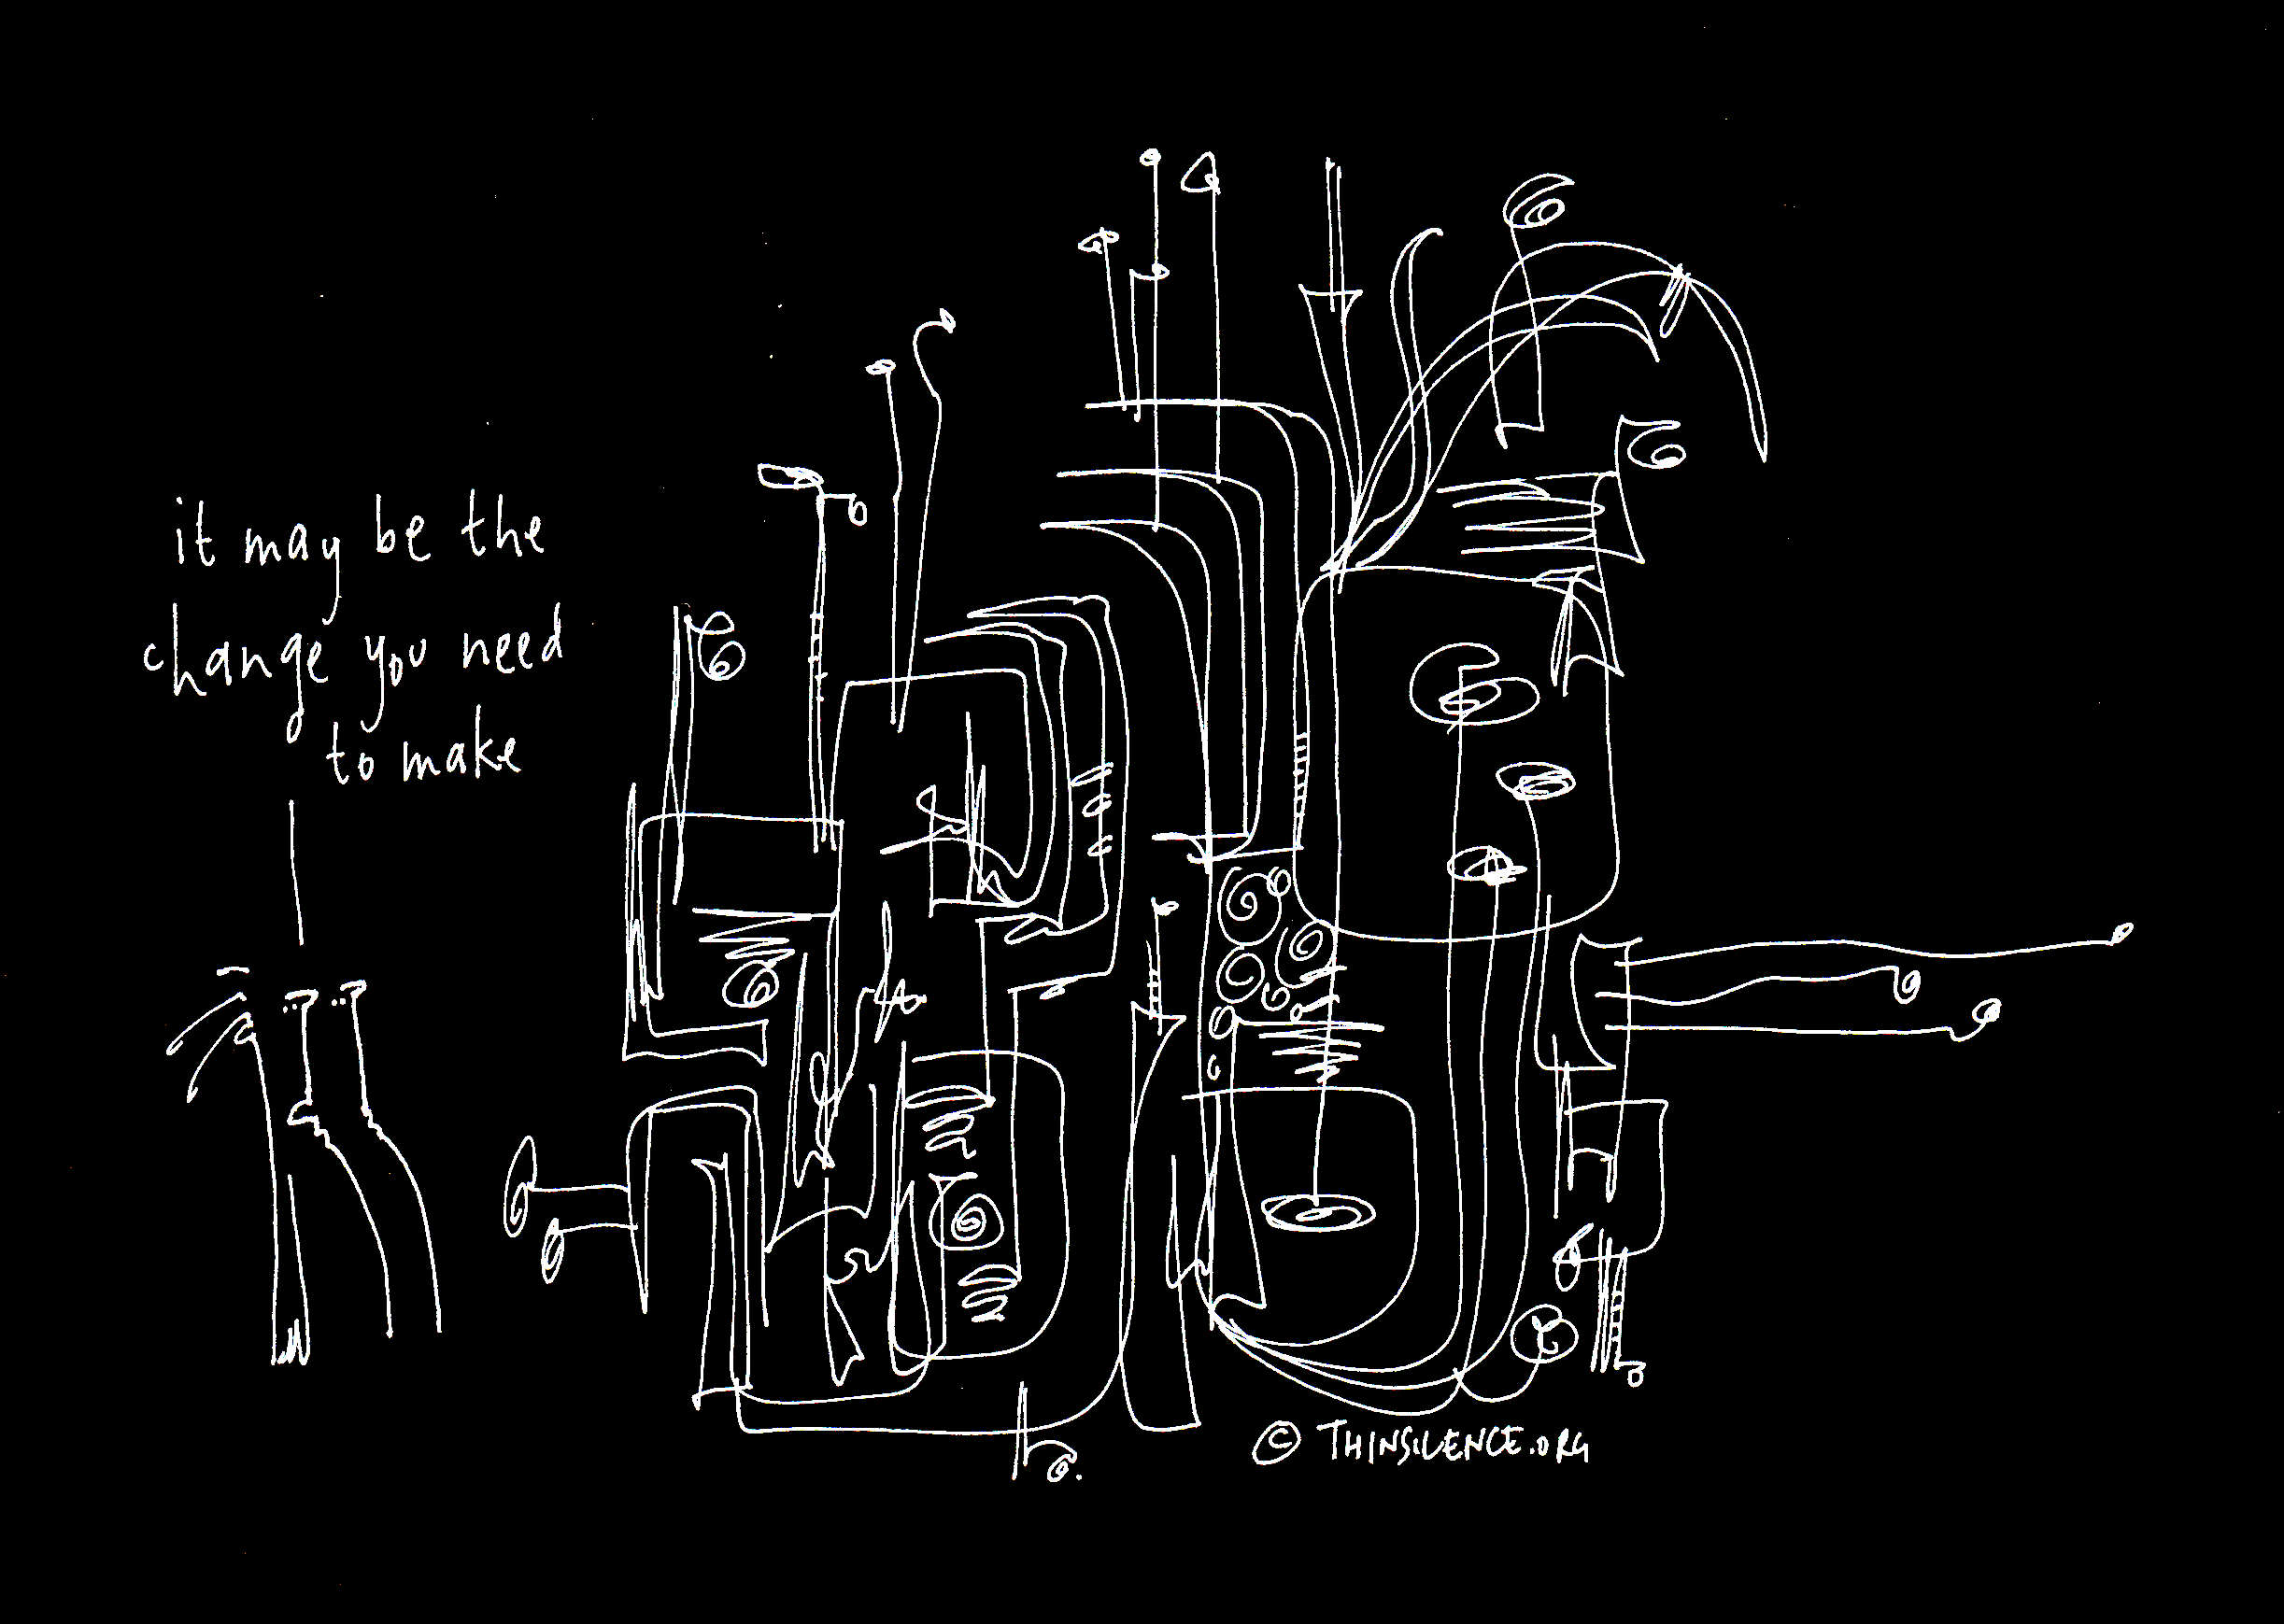 it may be the
change you need
to make
© THINSILENCE.ORG